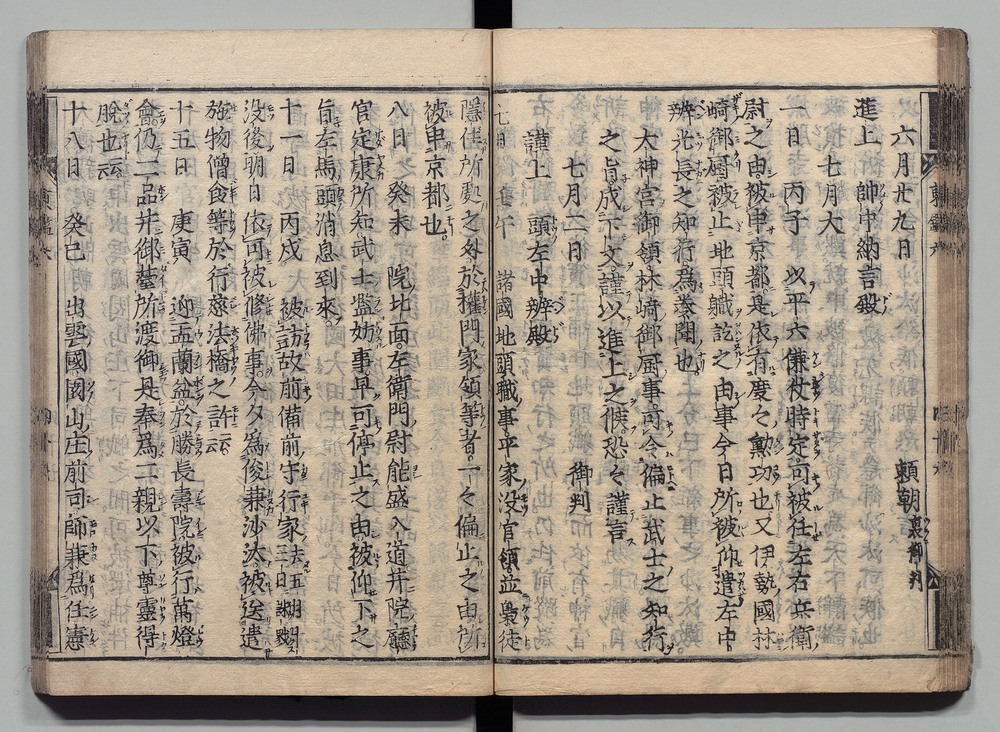 六月廿九日　　　　　　頼朝裏御判
進上　帥中納言殿
七月大
一日　丙子　以平六傔仗時定可被任左右兵衛
尉之由被申京都是依有度々勲功也又伊勢國林
崎御厨被止地頭職訖之由事今日所被仰遣左中
辨光長之知行為養聞也
太神宮御領林崎御厨事可令偏止武士之知行
之旨成下文謹以進上之候恐々謹言
七月一日　　　　　　　御判
謹上　頭左中辨殿
七日　壬午　諸國地頭職事平家没官領並梟徒
隠住所處之外於權門家領等者一々偏止之由所
被申京都也
八日　癸未　院北面左衛門尉能盛入道并院廳
官定康所知武士濫妨事早可停止之由被仰下之
旨左馬頭消息到來
十一日　丙戌　被訪故前備前守行家三日
没後明日依可被修佛事今夕為俊兼沙汰被送遣
施物僧食等於行慈法橋之許云云
十五日　庚寅　迎盂蘭盆於勝長壽院被行萬燈
會仍二品并御臺所渡御是奉為二親以下尊靈得
脱也云云
十八日　癸巳　出雲國園山庄前司師兼為任憲